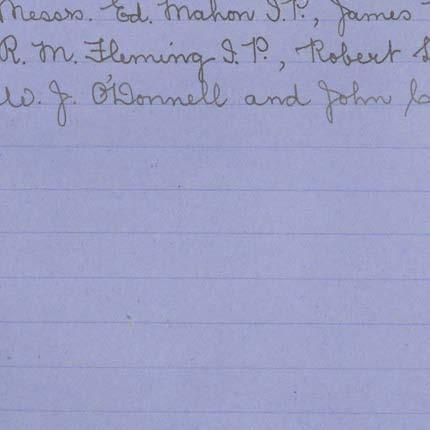 Messrs. Ed. Mahon J.P., James
R. M. Fleming J.P., Robert
W. J. O'Donnell and John